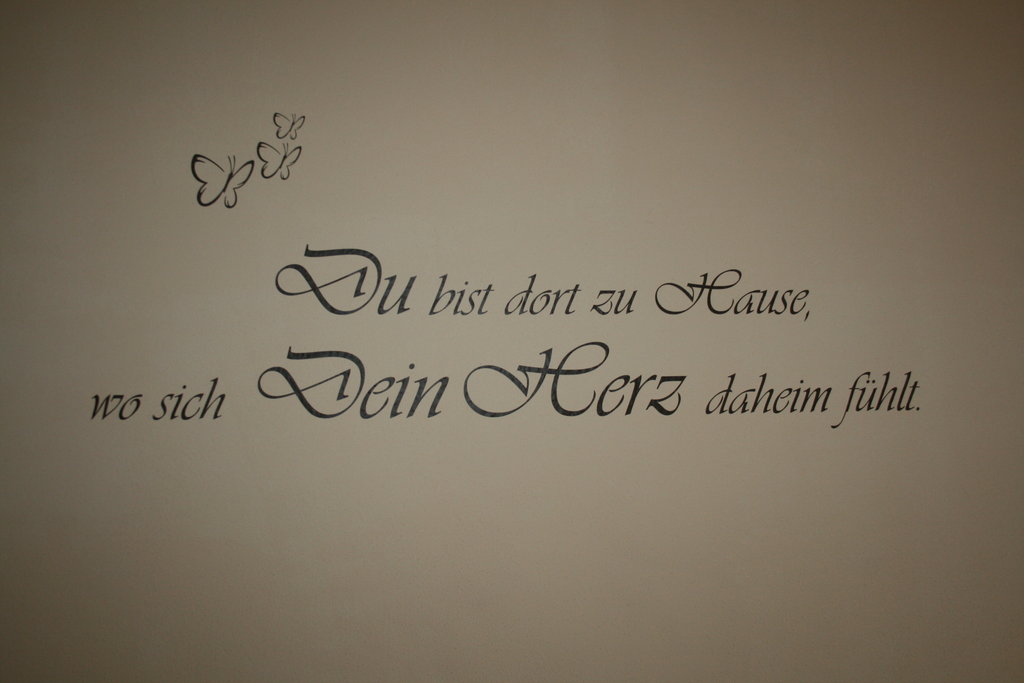 Du bist dort zu Hause,
wo sich Dein Herz daheim fühlt.